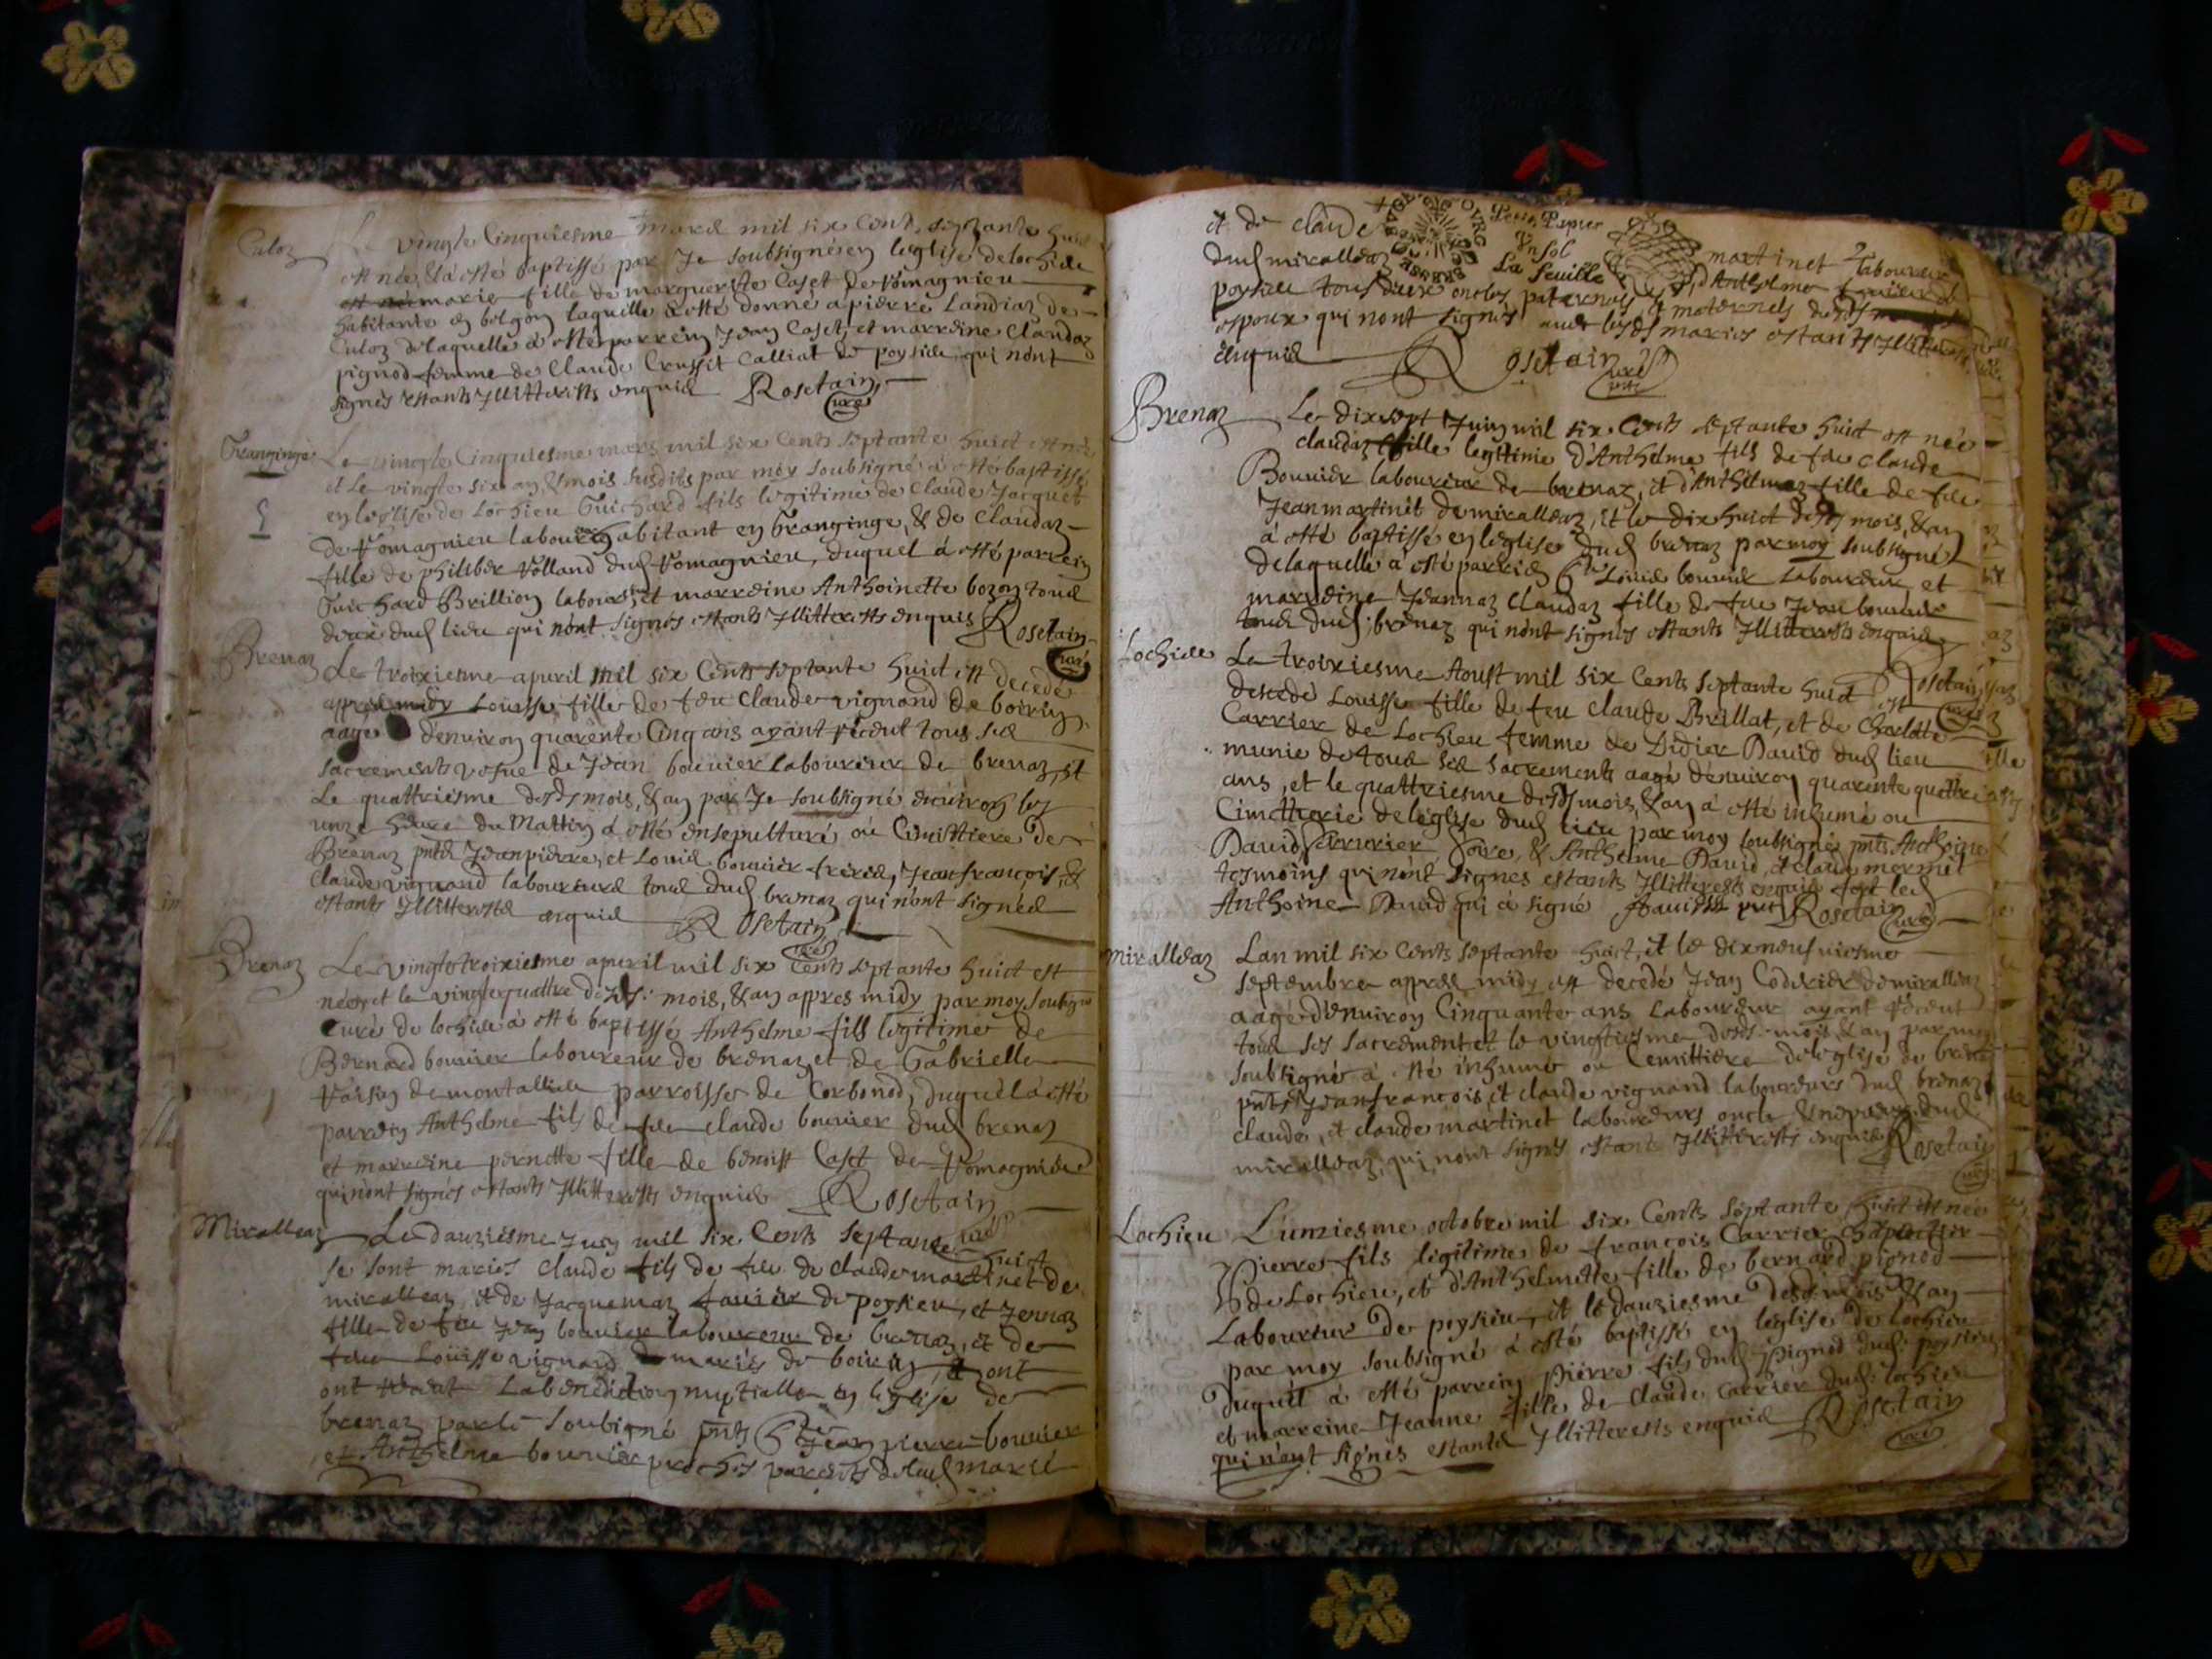 Culoz
Le vingte Cinquiesme mars mil six Cents septante huict
est née & a esté baptissé par Je soubsigné en leglise de lochieu
marie fille de marguerite Caset de Vomagnieu
habitante en laquelle a esté donné a pierre Landiaz de
Culoz delaquelle a esté parrein Jean Caset, et marreine Claudaz
pignod femme de Claude Crussit Calliat de poysieu qui nont
signés estants Jllitterests enquis Rosetain
curé
Franginge
Le vingte Cinquiesme mars mil six Cents septante huict est né
et Le vingte six an, & mois susdits par moy soubsigné a esté baptissé
en leglise de Lochieu Guichard fils legitime de Claude Jacquet
de Vomagnieu laboureur habitant en Franginge, & de Claudaz
fille de philiber Volland dud Vomagnieu, duquel à esté parrein
Guichard Brillion labour et marreine Anthoinette bozon tous
deux dud lieu qui nont signés estants Jllitterests enquis Rosetain
curé
Brenaz
Le troixiesme apvril mil six Cents septante huict est decedé
appres midy Louisse fille de feu Claude vignand de boirin
aagé d'enuiron quarente Cinq ans ayant receut tous ses
sacrements vefue de Jean bouvier laboureur de brenaz, et
Le quattriesme desds mois, & an par Je soubsigné enuiron les
unze heure du Mattin à esté ensepulturé ou Cimittiere de
Brenaz pnts Jeanpierre, et Louis bouvier freres, Jeanfrançois, &
Claude vignand laboureurs tous dud brenaz qui n'ont signés
estants Jllitterests enquis Rosetain
curé
Brenaz
Le vingte troixiesme apuril mil six Cents septante huict est
née, et le vingte quattre desds mois, & an appres midy par moy soubsigné
Curé de lochieu à esté baptissé Anthelme fils legitime de
Bernard bouvier laboureur de brenaz et de Gabrielle
Vaisin de montallieu parroisse de Corbonod, duquel à esté
parrein Anthelme fils de feu claude bouvier dud brenaz
et marreine pernette fille de benoist Caset de Vomagnieu
qui nont signés estants Jllitterests enquis Rosetain
curé
Miralleaz
Le dauziesme Juin mil six Cents septante huict
se sont mariés claude fils de feu de claude martinet de
miralleaz, et de Jacquemaz fauier de poysieu, et Jennaz
fille de feu Jean bouvier laboureur de brenaz, et de
feue Louisse vignand mariés de boirin, ont
ont receut La benediction nuptialle en leglise de
brenaz par le soubsigné pnts Jean pierre bouvier
et Anthelme bouvier proches parents de lad mariée
et de claude martinet laboureur
dud miralleaz d'Anthelme
poysieu tous deux oncles paternels & maternels desds
espoux qui nont signés auec lesds mariés estants Jllitterests
enquis Rosetain curé
Petit Papier
Vn sol
La feuille
Brenaz
Le dixsept Juin mil six Cents septante huict est née
claudaz fille legitime d'Anthelme fils de feu Claude
Bouvier laboureur de brenaz, et d'Anthelmaz fille de feu
Jean martinet de miralleaz, et le dixhuict desds mois, & an
à esté baptissé en leglise dud brenaz par moy soubsigné
delaquelle a esté parrein Louis bouvier Laboureur et
marreine Jeannaz Claudaz fille de feu Jean bouvier
tous dud brenaz qui nont signés estants Jllitterests enquis
Rosetain curé
Lochieu
Le troixiesme Aoust mil six Cents septante huict est
descedé Louisse fille de feu Claude Brillat, et de Charlotte
Carrier de Lochieu femme de Didier David dud lieu
munie de tous ses sacrements aagé d'enuiron quarente quattre
ans, et le quattriesme desds mois, & an à esté inhumé ou
Cimettierie de leglise dud lieu par moy soubsigné pnts Anthoine
David & Anthelme David, et claude mermet
tesmoins qui nont signes estants Jllitterests enquis fort led
Anthoine David qui à signé Rosetain
curé
Miralleaz
Lan mil six Cents septante huict, et le dixneufuiesme
septembre appres midy est decedé Jean Codurier de miralleaz
aagé d'enuiron Cinquante ans Laboureur ayant receut
tous ses sacrement et le vingtiesme desds mois & an par moy
soubsigné à esté inhumé ou Cemittiere de leglise de brenaz
pnts Jeanfrancois, et claude vignand laboureurs dud brenaz
claude, et claude martinet laboureurs oncle & nepveu dud
miralleaz, qui nont signés estants Jllitterests enquis Rosetain
curé
Lochieu
L'unziesme octobre mil six Cents septante huict est née
Pierre fils legitime de francois Carrier
de Lochieu, et d'Anthelmette fille de bernard pignod
Laboureur de poysieu, et le dauziesme desds mois & an
par moy soubsigné à esté baptissé en leglise de Lochieu
Duquel à esté parrein Pierre fils dud pignod dud poysieu
et marreine Jeanne fille de Claude Carrier dud lochieu
qui n'ont signés estants Jllitterests enquis Rosetain
curé